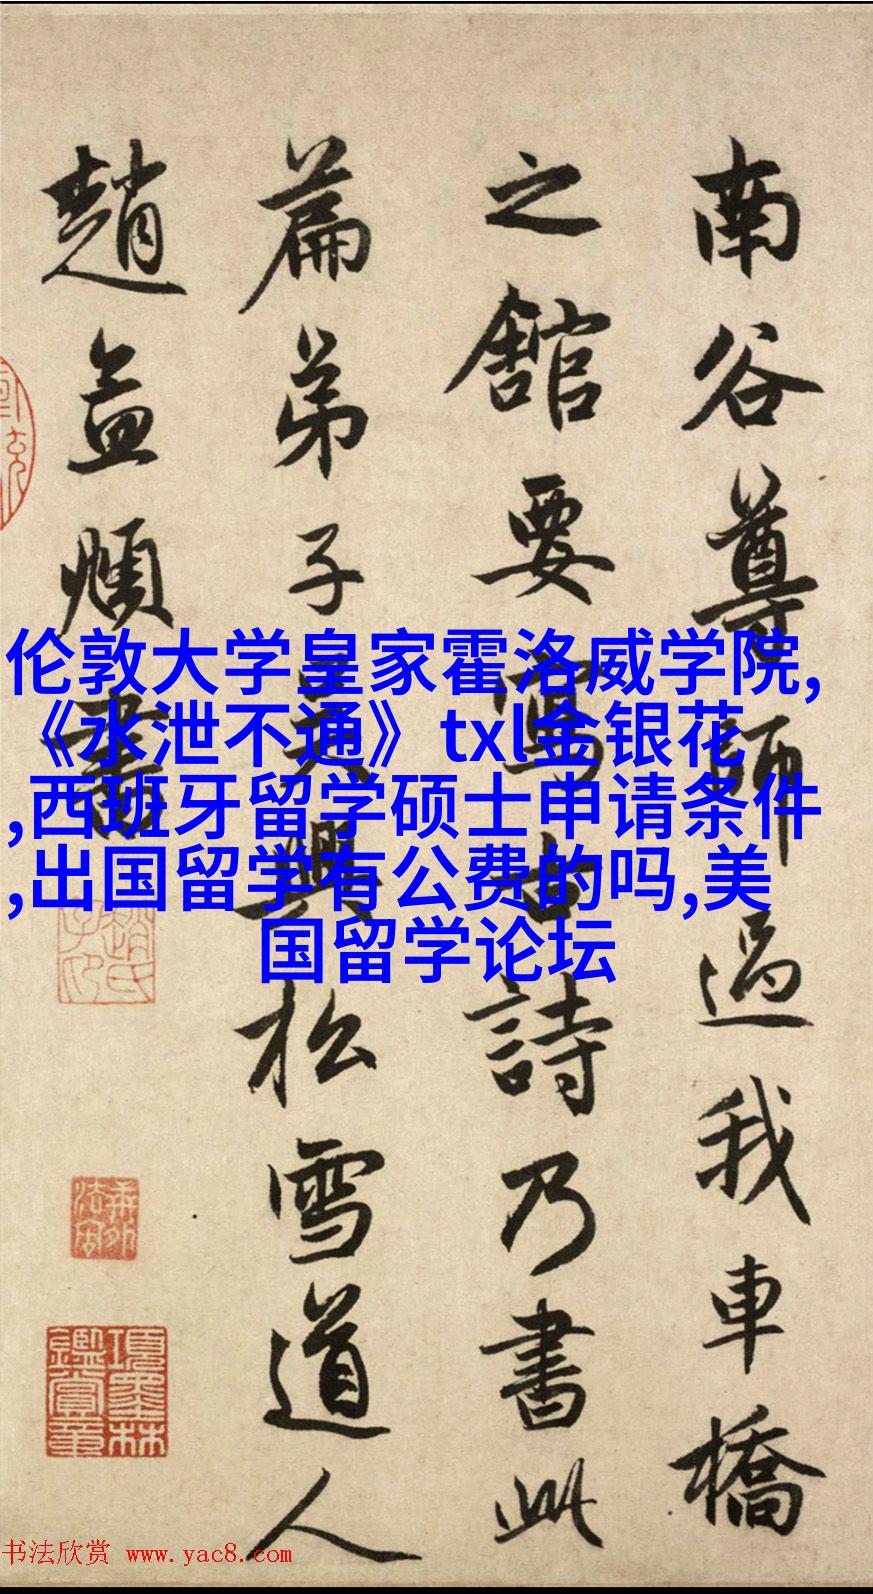 南谷尊師過我車橋
之舘要寫古詩乃書此
篇弟子吳興松雪道人
趙孟頫書
伦敦大学皇家霍洛威学院,
《水泄不通》txl金银花
,西班牙留学硕士申请条件
,出国留学有公费的吗,美
国留学论坛
項墨林
鑑賞章
书法欣赏 www.yac8.com